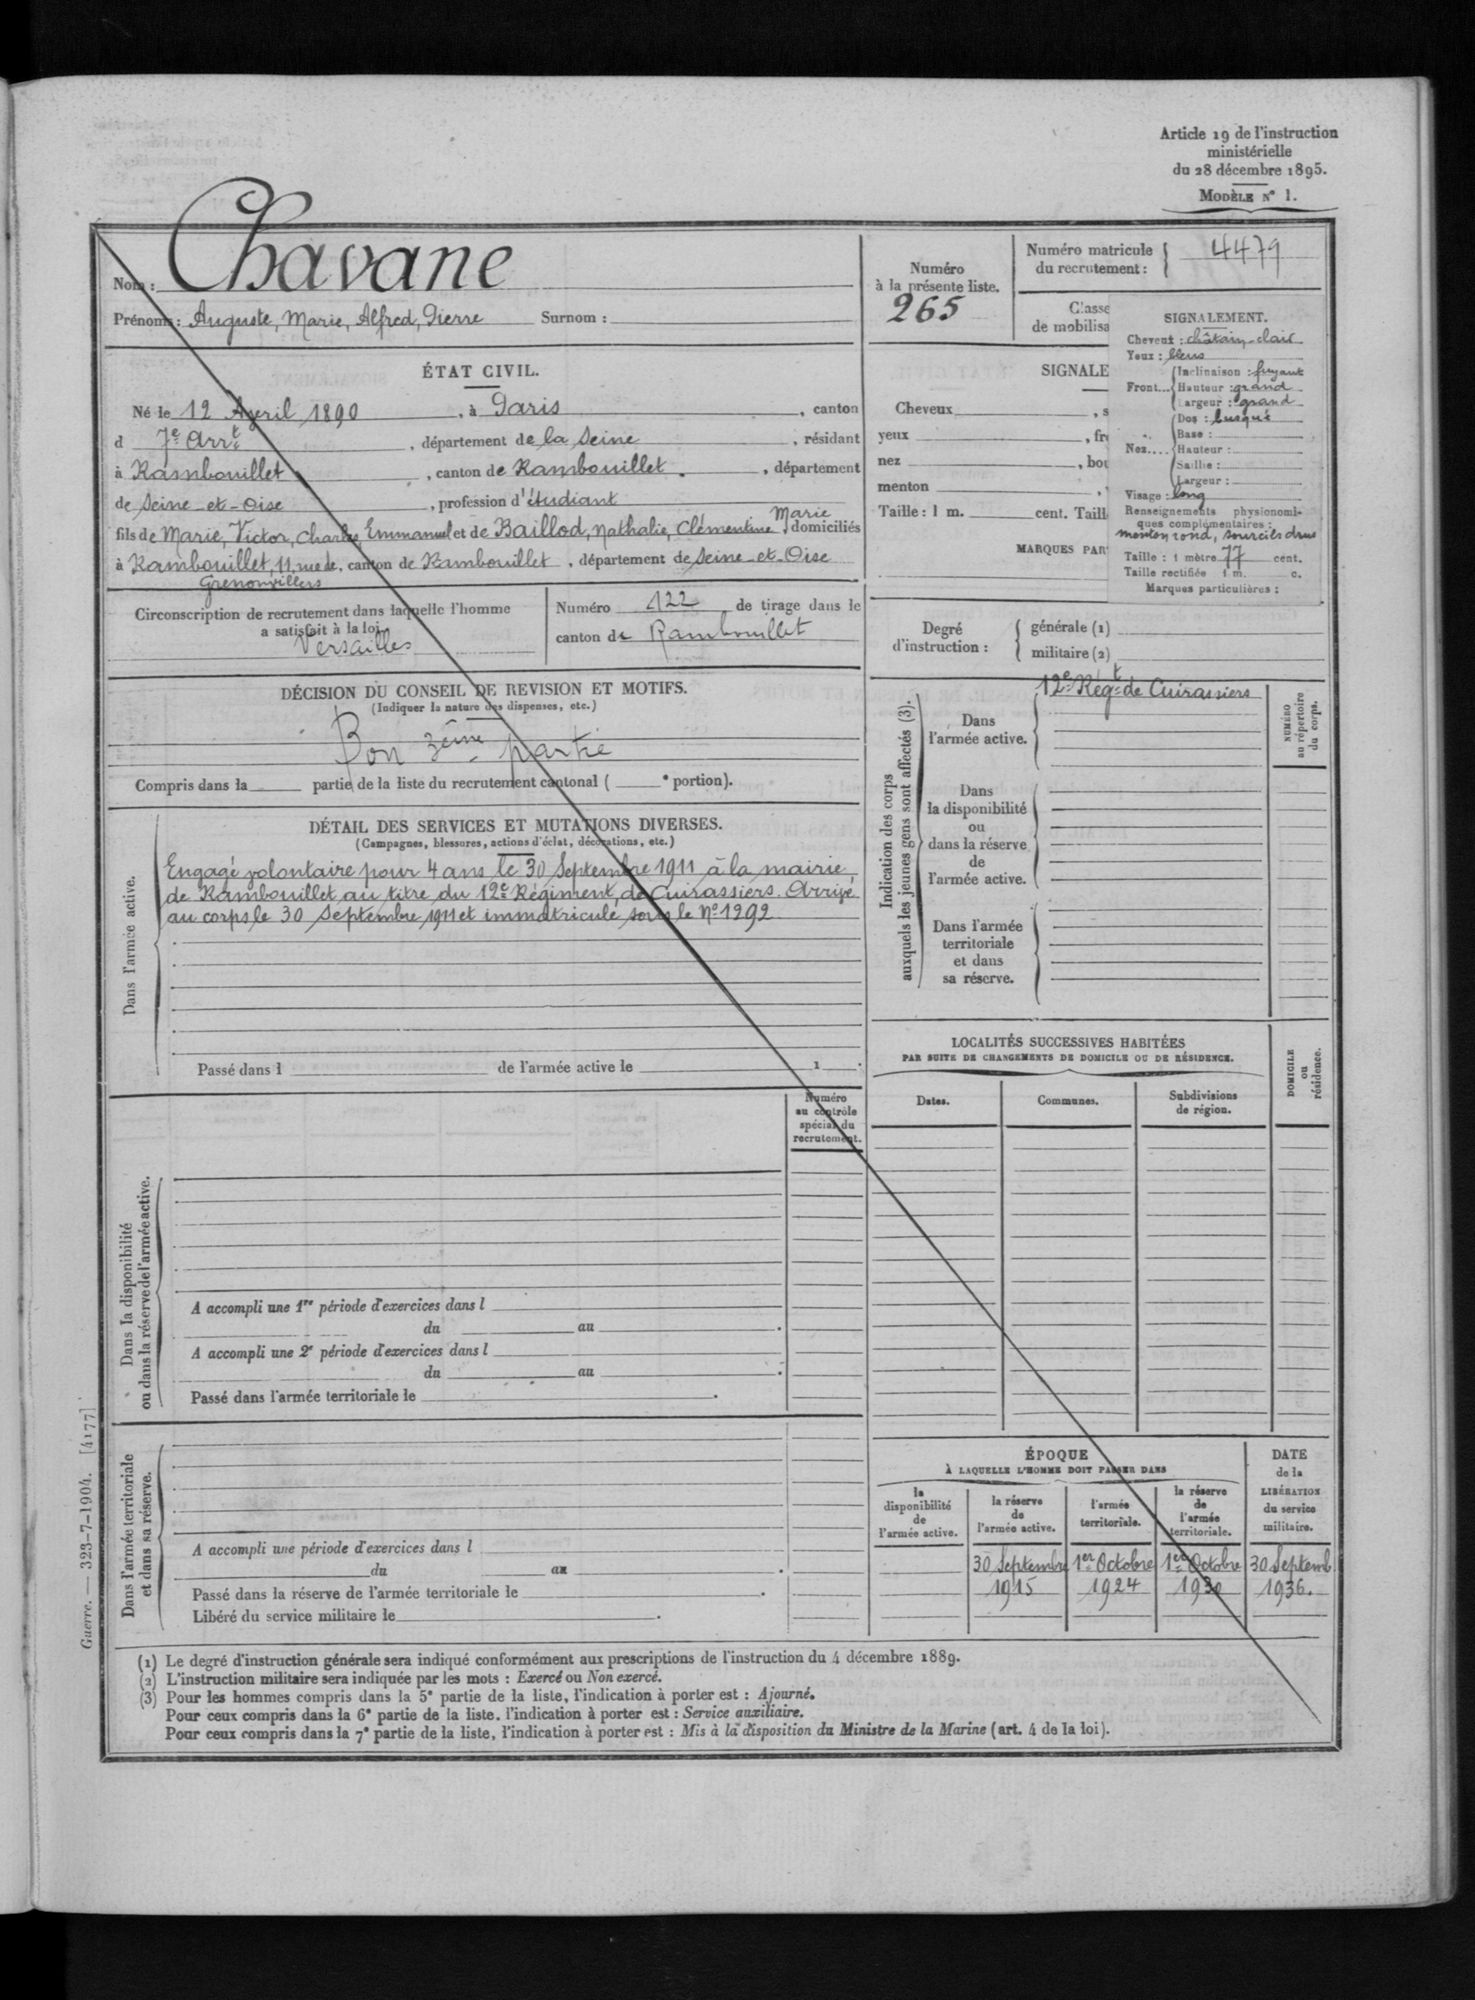 Article 19 de l'instruction
ministérielle
du 28 décembre 1895.
MODÈLE N° 1.
Nom : Chavane
Prénoms : Auguste, Marie, Alfred, Pierre Surnom :
Numéro
à la présente liste.
265
Numéro matricule
du recrutement :
4479
Classe
de mobilisa
ÉTAT CIVIL.
Né le 12 Avril 1890, à Paris, canton
d 7e Arrt, département de la Seine, résidant
à Rambouillet, canton de Rambouillet, département
de Seine-et-Oise, profession d'étudiant
fils de Marie, Victor, Charles Emmanuel et de Baillod, Nathalie, Clémentine Marie, domiciliés
à Rambouillet, 11, rue de, canton de Rambouillet, département de Seine-et-Oise
Grenonvillers
SIGNALE
Cheveux , s
yeux , fr
nez , bou
menton ,
Taille : 1 m. cent. Taill
MARQUES PAR
SIGNALEMENT.
Cheveux : châtain-clair
Yeux : bleus
Front... Inclinaison : fuyant
Hauteur : grand
Largeur : grand
Nez.... Dos : busqué
Base :
Hauteur :
Saillie :
Largeur :
Visage : long
Renseignements physionomi-
ques complémentaires :
menton rond, sourcils drus
Taille : 1 mètre 77 cent.
Taille rectifiée 1 m. c.
Marques particulières :
Circonscription de recrutement dans laquelle l'homme
a satisfait à la loi
Versailles
Numéro 122 de tirage dans le
canton de Rambouillet
Degré
d'instruction :
générale (1)
militaire (2)
DÉCISION DU CONSEIL DE REVISION ET MOTIFS.
(Indiquer la nature des dispenses, etc.)
Bon 3ème partie
Compris dans la partie de la liste du recrutement cantonal ( e portion).
DÉTAIL DES SERVICES ET MUTATIONS DIVERSES.
(Campagnes, blessures, actions d'éclat, décorations, etc.)
Dans l'armée active.
Engagé volontaire pour 4 ans le 30 Septembre 1911 à la mairie
de Rambouillet au titre du 12e Régiment de Cuirassiers. Arrivé
au corps le 30 Septembre 1911 et immatriculé sous le N° 1292
Passé dans l de l'armée active le 1 .
Indication des corps
auxquels les jeunes gens sont affectés (3).
12e Régt de Cuirassiers
Dans
l'armée active.
Dans
la disponibilité
ou
dans la réserve
de
l'armée active.
Dans l'armée
territoriale
et dans
sa réserve.
NUMÉRO
au répertoire
du corps.
LOCALITÉS SUCCESSIVES HABITÉES
PAR SUITE DE CHANGEMENTS DE DOMICILE OU DE RÉSIDENCE.
Dates.
Communes.
Subdivisions
de région.
DOMICILE
ou
résidence.
Numéro
au contrôle
spécial du
recrutement.
Dans la disponibilité
ou dans la réserve de l'armée active.
A accompli une 1re période d'exercices dans l
du au .
A accompli une 2e période d'exercices dans l
du au .
Passé dans l'armée territoriale le .
Dans l'armée territoriale
et dans sa réserve.
A accompli une période d'exercices dans l
du au .
Passé dans la réserve de l'armée territoriale le .
Libéré du service militaire le .
ÉPOQUE
À LAQUELLE L'HOMME DOIT PASSER DANS
la
disponibilité
de
l'armée active.
la réserve
de
l'armée active.
l'armée
territoriale.
la réserve
de
l'armée
territoriale.
DATE
de la
LIBÉRATION
du service
militaire.
30 Septembre 1er Octobre 1er Octobre 30 Septemb
1915 1924 1930 1936.
(1) Le degré d'instruction générale sera indiqué conformément aux prescriptions de l'instruction du 4 décembre 1889.
(2) L'instruction militaire sera indiquée par les mots : Exercé ou Non exercé.
(3) Pour les hommes compris dans la 5e partie de la liste, l'indication à porter est : Ajourné.
Pour ceux compris dans la 6e partie de la liste, l'indication à porter est : Service auxiliaire.
Pour ceux compris dans la 7e partie de la liste, l'indication à porter est : Mis à la disposition du Ministre de la Marine (art. 4 de la loi).
Guerre. — 323-7-1904. [4177]